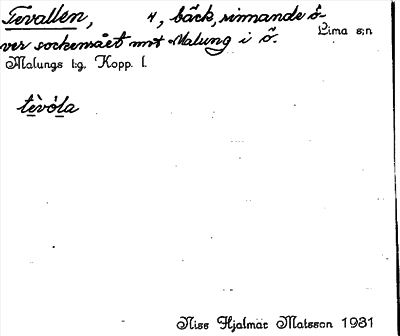 Tevallen, 4, bäck, rinnande ö-
Lima s:n
ver sockenrået mot Malung i ö.
Malungs t:g. Kopp. l.
tèvóla
Niss Hjalmar Matsson 1931